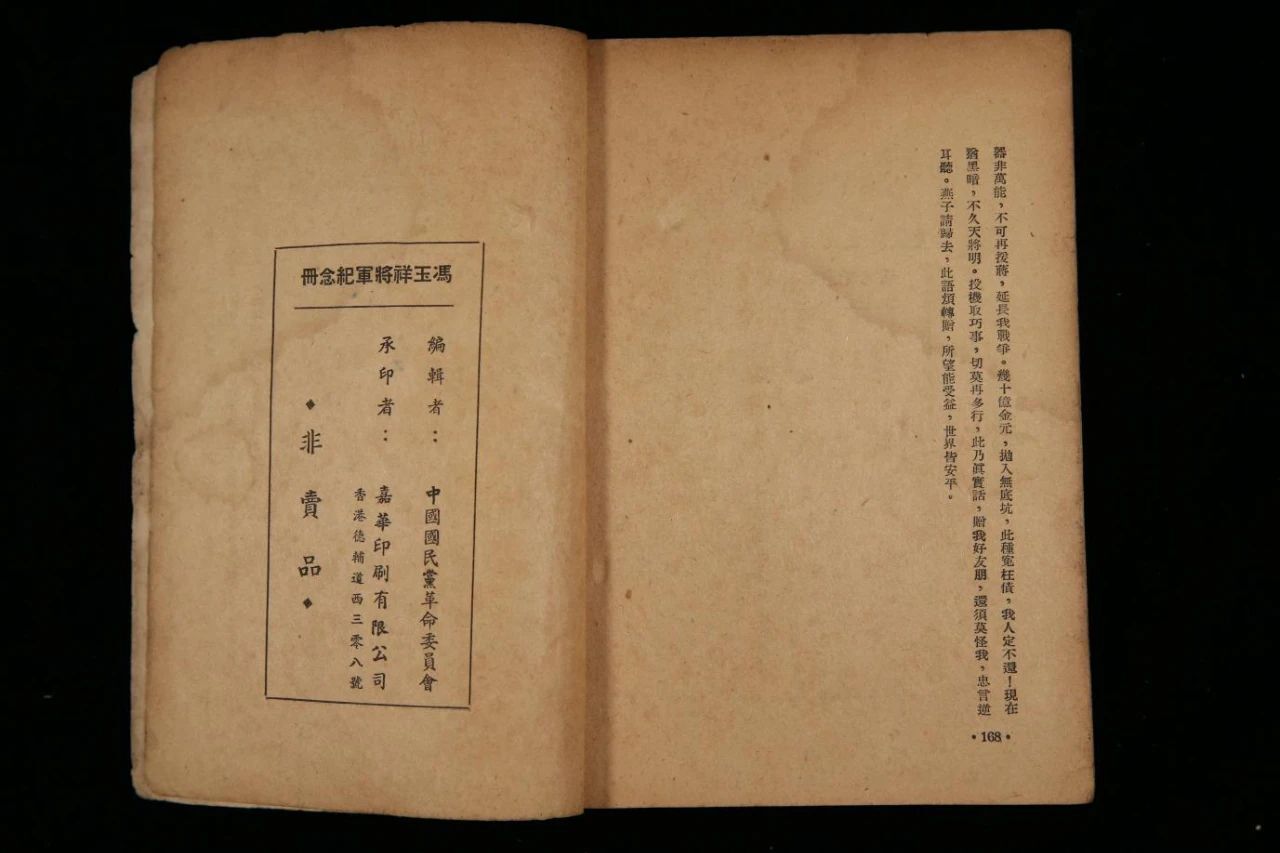 器非萬能，不可再援蔣，延長我戰爭。幾十億金元，拋入無底坑，此種冤枉債，我人定不還！現在
猶黑暗，不久天將明。投機取巧事，切莫再多行，此乃眞實話，贈我好友朋，還須莫怪我，忠言逆
耳聽。燕子請歸去，此語煩轉贈，所望能受益，世界皆安平。
•168•
馮玉祥將軍紀念冊
編輯者：中國國民黨革命委員會
承印者：嘉華印刷有限公司
香港德輔道西三零八號
◆非賣品◆